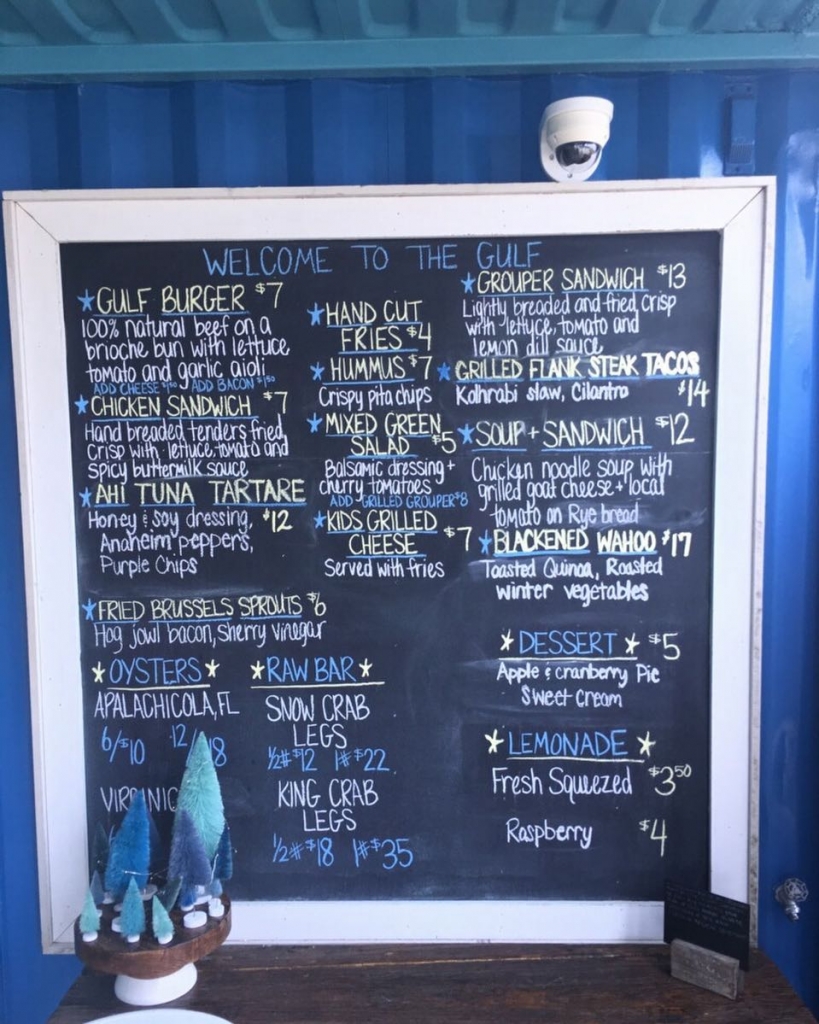 WELCOME TO THE GULF
GULF BURGER $7
100% natural beef on a
brioche bun with lettuce
tomato and garlic aioli
ADD CHEESE $1.50 / ADD BACON $1.50
CHICKEN SANDWICH $7
Hand breaded tenders fried
crisp with lettuce, tomato and
spicy buttermilk sauce
AHI TUNA TARTARE
Honey & soy dressing, $12
Anaheim peppers,
Purple Chips
FRIED BRUSSELS SPROUTS $6
Hog jowl bacon, sherry vinegar
HAND CUT
FRIES $4
HUMMUS $7
Crispy pita chips
MIXED GREEN
SALAD $5
Balsamic dressing +
cherry tomatoes
ADD GRILLED GROUPER $8
KIDS GRILLED
CHEESE $7
Served with fries
GROUPER SANDWICH $13
Lightly breaded and fried crisp
with lettuce, tomato and
lemon dill sauce
GRILLED FLANK STEAK TACOS
Kolhrabi slaw, Cilantro $14
SOUP + SANDWICH $12
Chicken noodle soup with
grilled goat cheese + local
tomato on Rye bread
BLACKENED WAHOO $17
Toasted Quinoa, Roasted
winter vegetables
OYSTERS
APALACHICOLA, FL
6/$10 12/18
RAW BAR
SNOW CRAB
LEGS
1/2# $12 1# $22
KING CRAB
LEGS
1/2# $18 1# $35
DESSERT $5
Apple & cranberry Pie
Sweet Cream
LEMONADE
Fresh Squeezed $3.50
Raspberry $4